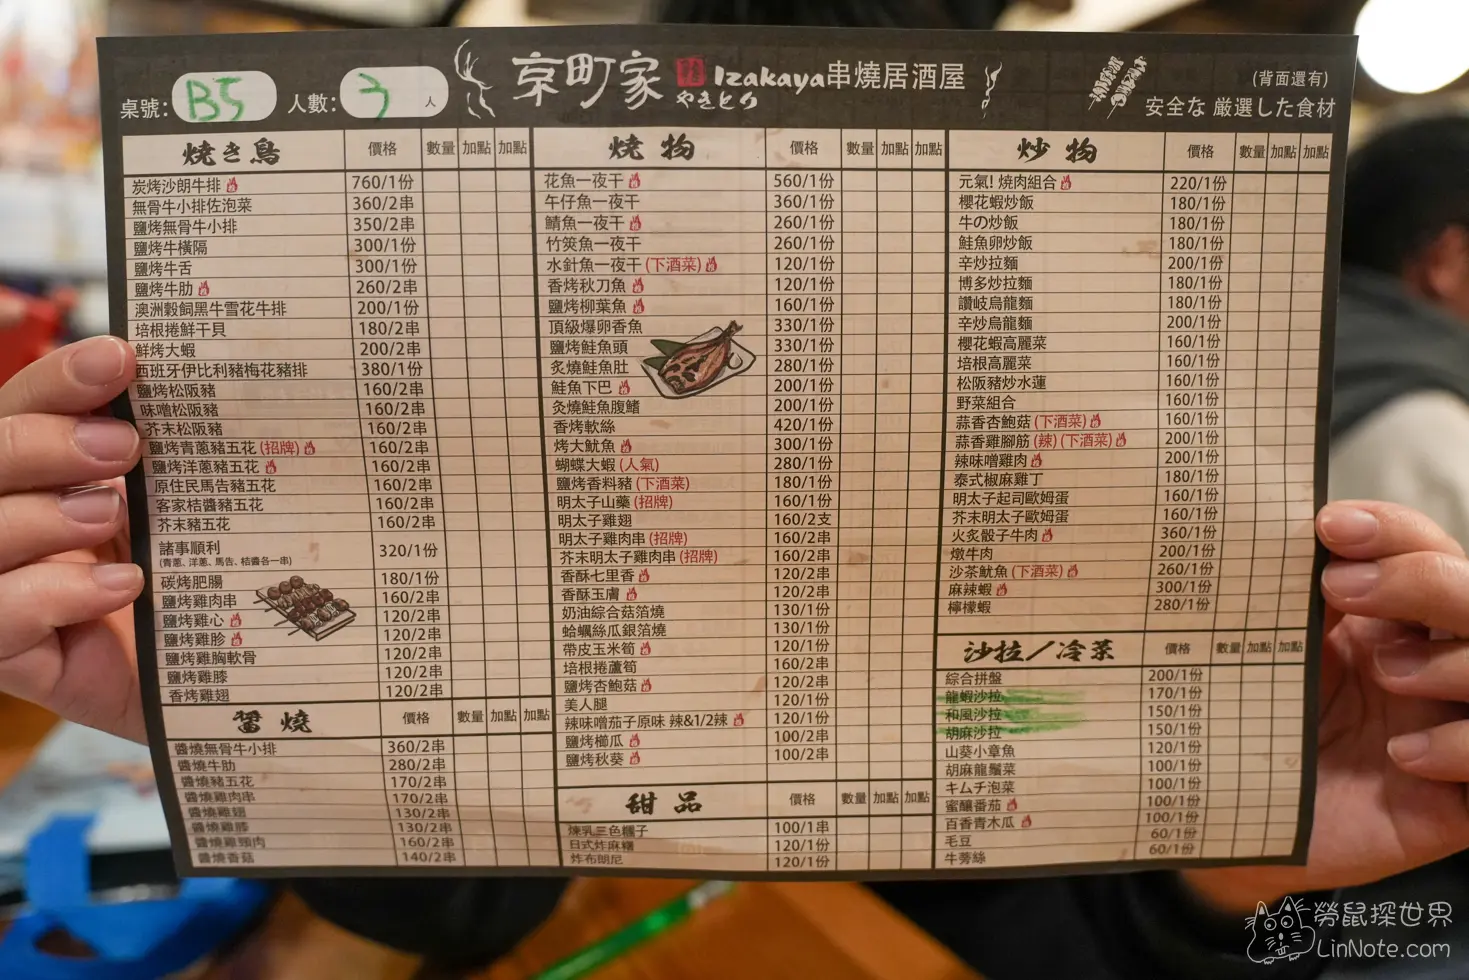 桌號: B5 人數: 3 人
京町家 Izakaya串燒居酒屋
やきとり
(背面還有)
安全な 厳選した食材
焼き鳥 價格 數量 加點 加點
炭烤沙朗牛排 760/1份
無骨牛小排佐泡菜 360/2串
鹽烤無骨牛小排 350/2串
鹽烤牛橫隔 300/1份
鹽烤牛舌 300/1份
鹽烤牛肋 260/2串
澳洲穀飼黑牛雪花牛排 200/1份
培根捲鮮干貝 180/2串
鮮烤大蝦 200/2串
西班牙伊比利豬梅花豬排 380/1份
鹽烤松阪豬 160/2串
味噌松阪豬 160/2串
芥末松阪豬 160/2串
鹽烤青蔥豬五花(招牌) 160/2串
鹽烤洋蔥豬五花 160/2串
原住民馬告豬五花 160/2串
客家桔醬豬五花 160/2串
芥末豬五花 160/2串
諸事順利 320/1份
(青蔥、洋蔥、馬告、桔醬各一串)
碳烤肥腸 180/1份
鹽烤雞肉串 160/2串
鹽烤雞心 120/2串
鹽烤雞胗 120/2串
鹽烤雞胸軟骨 120/2串
鹽烤雞膝 120/2串
香烤雞翅 120/2串
醤燒 價格 數量 加點 加點
醬燒無骨牛小排 360/2串
醬燒牛肋 280/2串
醬燒豬五花 170/2串
醬燒雞肉串 170/2串
醬燒雞翅 130/2串
醬燒雞膝 130/2串
醬燒雞頸肉 160/2串
醬燒香菇 140/2串
燒物 價格 數量 加點 加點
花魚一夜干 560/1份
午仔魚一夜干 360/1份
鯖魚一夜干 260/1份
竹筴魚一夜干 260/1份
水針魚一夜干(下酒菜) 120/1份
香烤秋刀魚 120/1份
鹽烤柳葉魚 160/1份
頂級爆卵香魚 330/1份
鹽烤鮭魚頭 330/1份
炙燒鮭魚肚 280/1份
鮭魚下巴 200/1份
炙燒鮭魚腹鰭 200/1份
香烤軟絲 420/1份
烤大魷魚 300/1份
蝴蝶大蝦(人氣) 280/1份
鹽烤香料豬(下酒菜) 180/1份
明太子山藥(招牌) 160/1份
明太子雞翅 160/2支
明太子雞肉串(招牌) 160/2串
芥末明太子雞肉串(招牌) 160/2串
香酥七里香 120/2串
香酥玉膚 120/2串
奶油綜合菇箔燒 130/1份
蛤蠣絲瓜銀箔燒 130/1份
帶皮玉米筍 120/1份
培根捲蘆筍 160/2串
鹽烤杏鮑菇 120/2串
美人腿 120/1份
辣味噌茄子原味 辣&1/2辣 120/1份
鹽烤櫛瓜 100/2串
鹽烤秋葵 100/2串
甜品 價格 數量 加點 加點
煉乳三色糰子 100/1串
日式炸麻糬 120/1份
炸布朗尼 120/1份
炒物 價格 數量 加點 加點
元氣! 燒肉組合 220/1份
櫻花蝦炒飯 180/1份
牛の炒飯 180/1份
鮭魚卵炒飯 180/1份
辛炒拉麵 200/1份
博多炒拉麵 180/1份
讚岐烏龍麵 180/1份
辛炒烏龍麵 200/1份
櫻花蝦高麗菜 160/1份
培根高麗菜 160/1份
松阪豬炒水蓮 160/1份
野菜組合 160/1份
蒜香杏鮑菇(下酒菜) 160/1份
蒜香雞腳筋(辣)(下酒菜) 200/1份
辣味噌雞肉 200/1份
泰式椒麻雞丁 180/1份
明太子起司歐姆蛋 160/1份
芥末明太子歐姆蛋 160/1份
火炙骰子牛肉 360/1份
燉牛肉 200/1份
沙茶魷魚(下酒菜) 260/1份
麻辣蝦 300/1份
檸檬蝦 280/1份
沙拉/冷菜 價格 數量 加點 加點
綜合拼盤 200/1份
龍蝦沙拉 170/1份
和風沙拉 150/1份
胡麻沙拉 150/1份
山葵小章魚 120/1份
胡麻龍鬚菜 100/1份
キムチ泡菜 100/1份
蜜釀番茄 100/1份
百香青木瓜 100/1份
毛豆 60/1份
牛蒡絲 60/1份
勞鼠探世界
LinNote.com